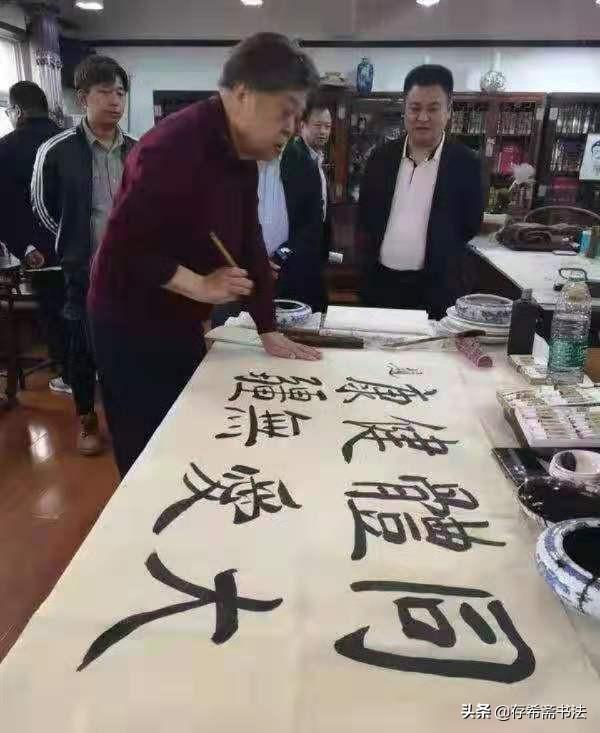 同體健康
大愛無疆
头条 @存希斋书法